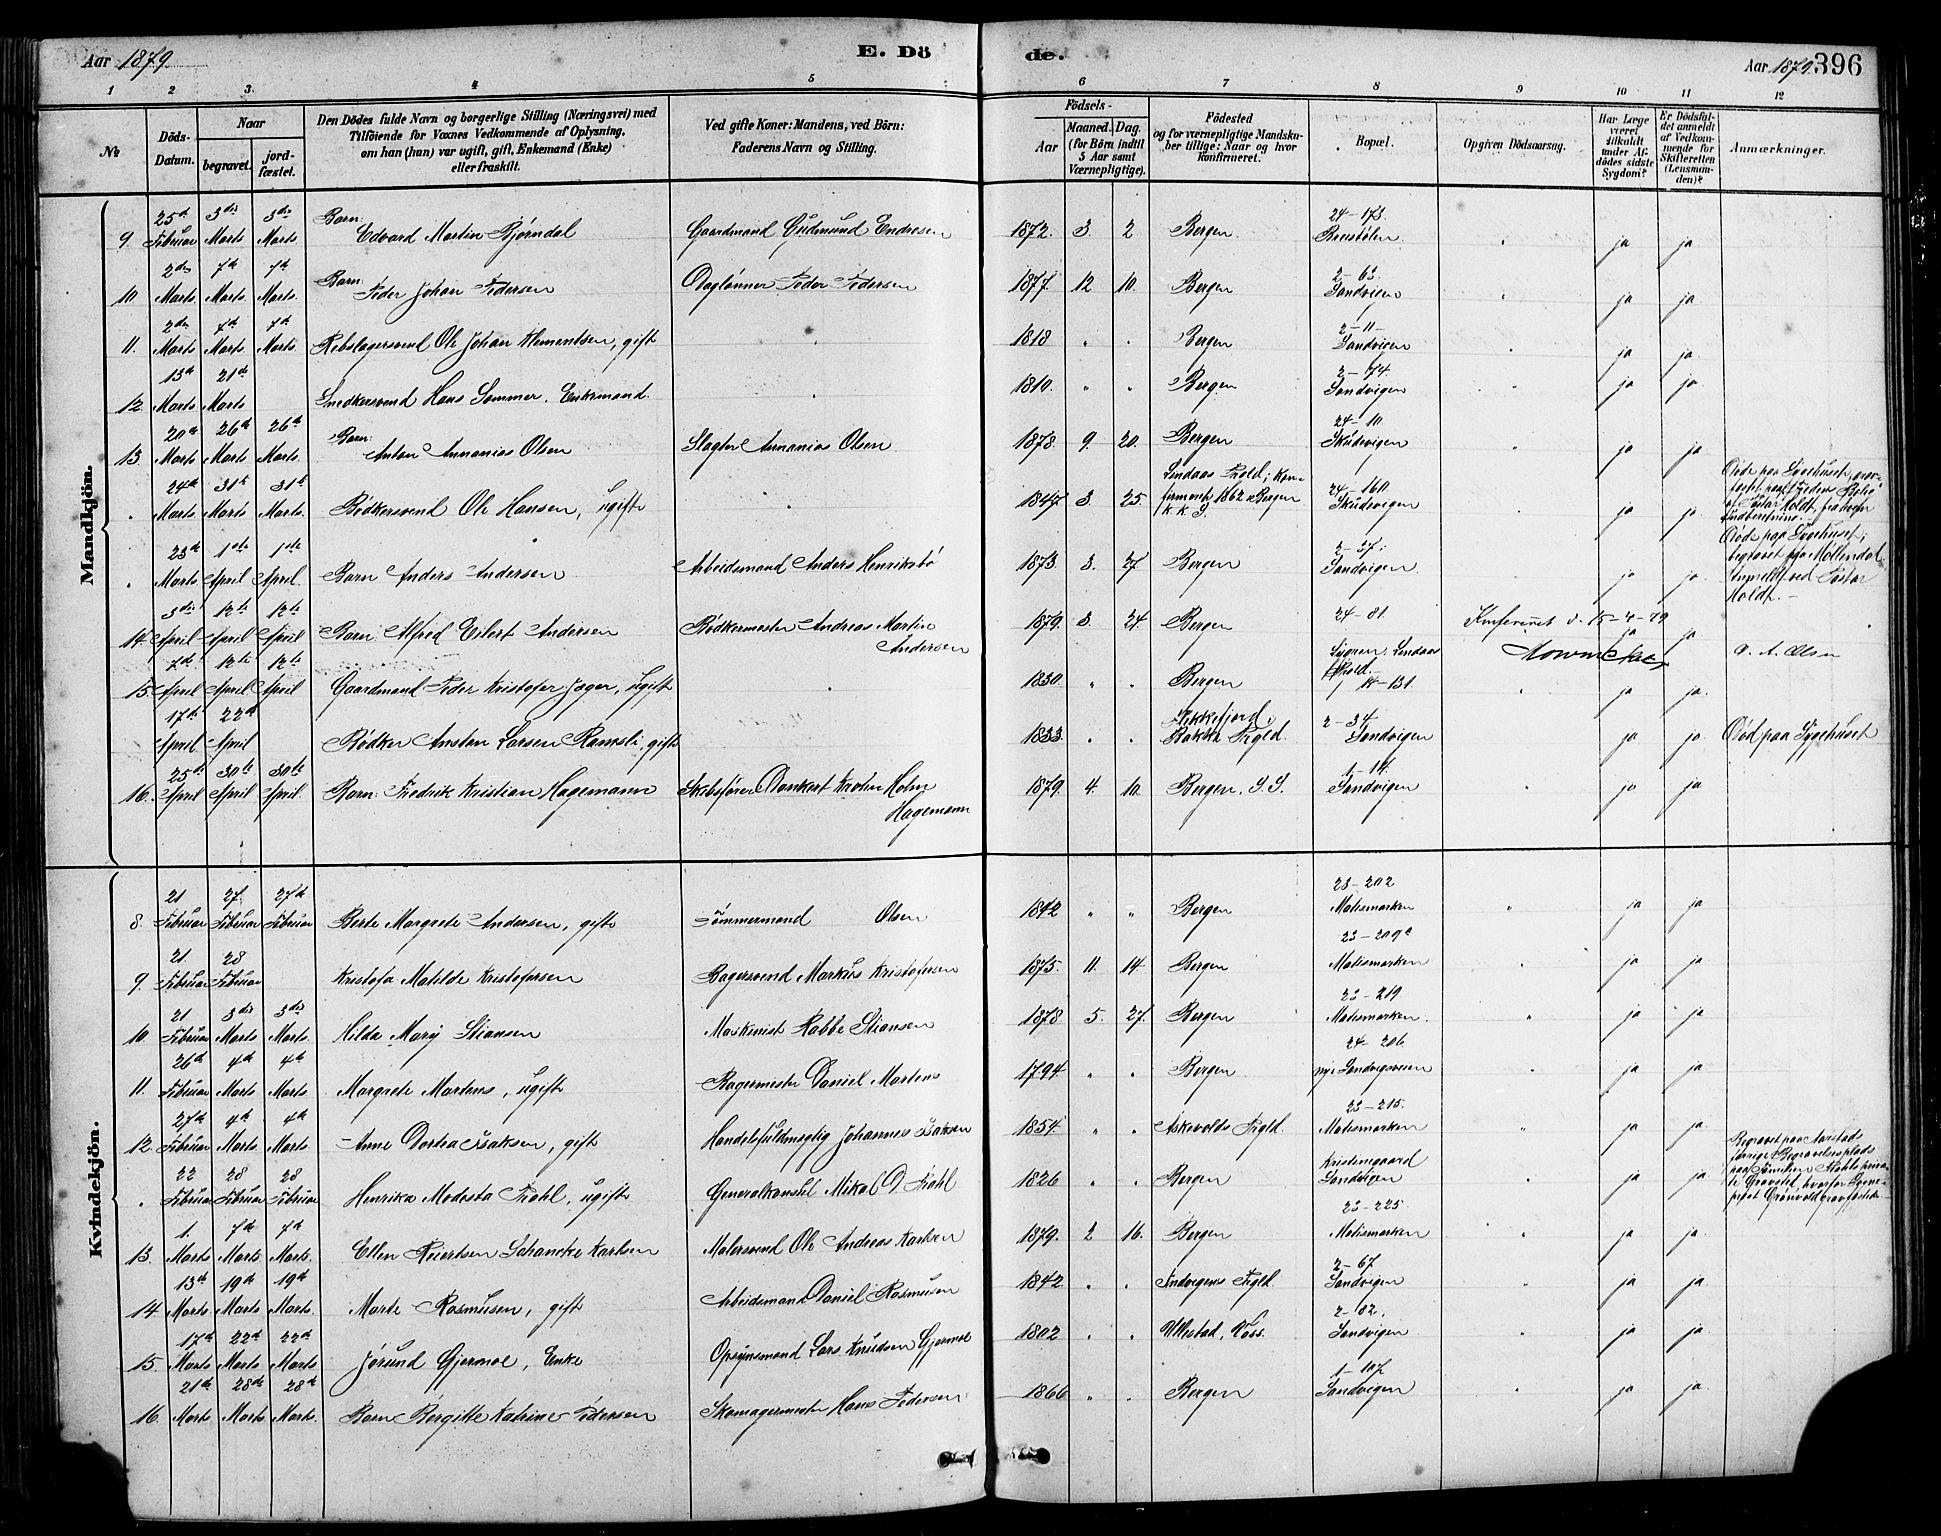 Aar 1879. E. Dö de. Aar 1879. 396
1 2 3. 4 5 6 7 8 9 10 11 12
№
Döds-Datum.
Naar
begravet.
jordfæstet.
Den Dödes fulde Navn og borgerlige Stilling (Næringsvei) med
Tilföiende for Voxnes Vedkommende af Oplysning,
om han (hun) var ugift, gift, Enkemand (Enke)
eller fraskilt.
Ved gifte Koner: Mandens, ved Börn:
Faderens Navn og Stilling.
Födsels-
Aar
Maaned. Dag.
(for Börn indtil
5 Aar samt
Værnepligtige).
Födested
og for værnepligtige Mandsku-
ber tillige: Naar og hvor
Konfirmeret.
Bopæl.
Opgiven Dödsaarsag.
Har Læge
været
tilkaldt
under Af-
dödes sidste
Sygdom?
Er Dödsfal-
det anmeldt
af Vedkom-
mende for
Skifteretten
(Lensman-
den)?
Anmærkninger.
Mandkjön.
25de 3die 3die Barn: 24–173.
9. Februar Marts Marts Edvard Martin Bjørndal Gaardmand Gudmund Endresen 1872. 3. 2 Bergen Breistølen " ja ja
2den 7de 7de Barn: 2–63.
10 Marts Marts Marts. Peder Johan Pedersen Daglønner Peder Pedersen 1877. 12 10. Bergen Sandvigen " ja ja
2den 7de 7de 2–11–
11. Marts Marts Marts. Rebslagersvend Ole Johan Klementsen, gift " 1818 " " Bergen Sandvigen " ja ja
13de 21de 2–74.
12. Marts Marts Snedkersvend Hans Sommer. Enkemand. " 1810. " " Bergen Sandvigen " ja ja
20de 26de 26de Barn: 24–10.
13. Marts Marts Marts. Anton Annanias Olsen Slagter Annanias Olsen 1878. 9. 20. Bergen Skudevigen " ja ja
24de 31te 31te Lindaas Prgld; Kon-
" Marts. Marts Marts. Bødkersvend Ole Hansen, ugift " 1847. 3. 25. firmeret 1862 i Bergen 24–160. Skudevigen ja ja Døde paa Sygehuset,
23de 1ste 1ste 2–37. Døde paa Sygehuset;
" Marts April April Barn Anders Andersen Arbeidsmand Anders Henriksbø 1873. 3. 27 Bergen Sandvigen. ja ja begravet paa Møllendal. Anmeldt ved Pastor Holdt.–
3die 12te 12te
14. April April April Barn: Alfred Eilert Andersen Bødkermester Andreas Martin Andersen 1879. 3. 24. Bergen 24–81. Konfereret d. 15–4–79 ja ja
7de 12te 12te Lygren, Lindaas Mowinckel O. A. Olsen
15. April April April Gaardmand Peder Kristofer Jæger, ugift " 1830 " " Bergen Prgld. 14–131. " ja ja.
17de 22de Flekkefjord; 2–34
April April Bødker Anstan Larsen Ramsli, gift 1833. " " Bakke Prgld. Sandvigen ja ja Død paa Sygehuset
25de 30te 30te 1–14.
16. April April April. Barn: Fredrik Kristian Hagemann Skibsfører Dankert Krohn Holm Hagemann 1879. 4. 10. Bergen. S. S. Sandvigen " ja ja
Kvindekjön.
21 27. 27de 23–202
8. Februar Februar Februar Berte Margrete Andersen, gift Tømmermand Olsen 1842 " " Bergen Matismarken " ja ja
21. 28 23–209a
9. Februar Februar Kristofa Matilde Kristofersen Bagersvend Markus Kristofersen 1875. 11. 14 Bergen Matismarken " ja ja
21 3die 3die 23–219
10. Februar Marts. Marts. Hilda Mary Stiansen Maskinist Rabbe Stiansen 1878 5. 27. Bergen Matismarken. " ja ja
26de 4de 4de 24–206.
11. Februar Marts Marts. Margrete Martens, ugift Bagermester Daniel Martens 1794 " " Bergen nye Sandvigsveien " ja ja
27de 4de 4de 23–215.
12. Februar Marts. Marts Anne Dortea Isaksen, gift Handelsfuldmægtig Johannes Isaksen 1854. " " Askevolds Prgld. Matismarken " ja ja
22 28 28 Kristinegaard Begravet paa Aarstads
" Februar Februar Februar Henrika Modesta Prahl, ugift Generalkonsul Mikal D. Prahl 1826 " " Bergen Sandvigen " ja ja
1. 7de 7de 23–225
13. Marts Marts Marts. Ellen Reiertsen Schancke Karlsen Malersvend Ole Andreas Karlsen 1879. 2 16. Bergen Matismarken " ja ja
13de 19de 19de 2–67
14 Marts. Marts Marts. Marte Rasmusen, gift Arbeidsmand Daniel Rasmusen 1842 " " Indvigens Prgld. Sandvigen " ja ja
17de 22de 22de 2–82.
15. Marts Marts. Marts Jørund Gjermoe, Enke Opsynsmand Lars Knudsen Gjermoe 1802 " " Ullestad, Voss. Sandvigen " ja ja
21de 28de 28de 1–107
16. Marts Marts. Marts. Barn Bergitte Katrine Pedersen Skomagermester Hans Pedersen 1866 " " Bergen Sandvigen " ja ja